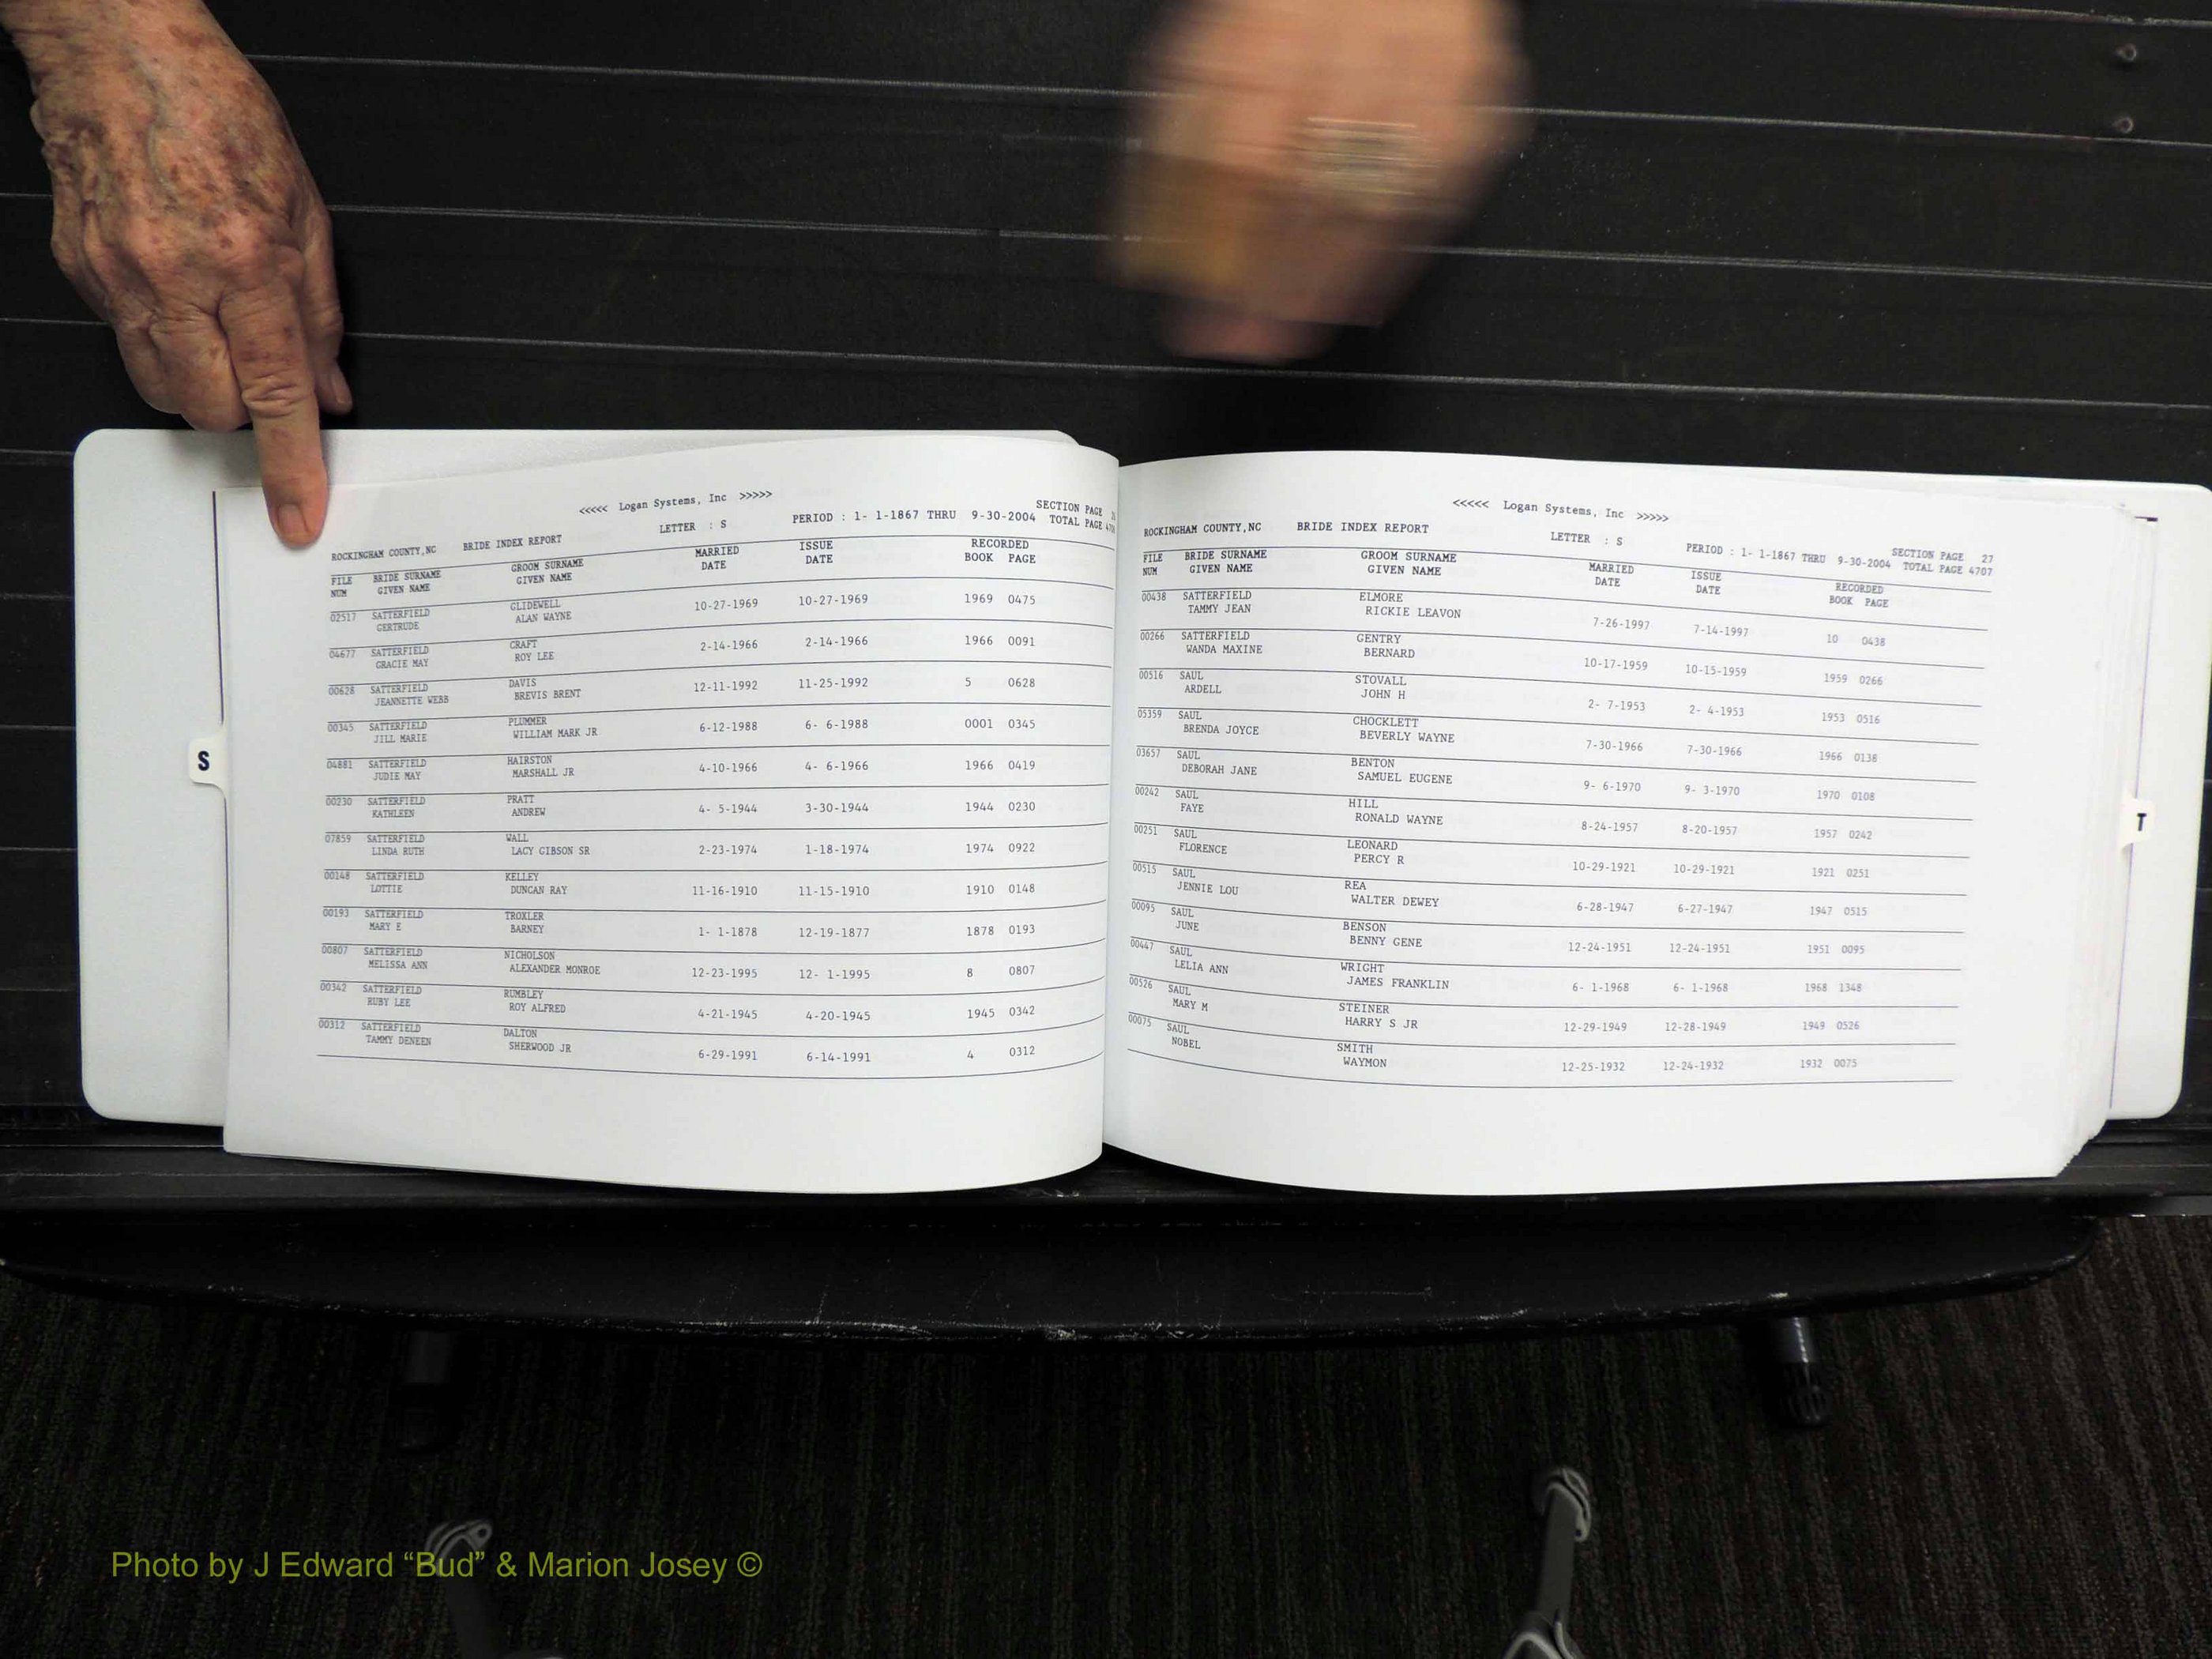 <<<<< Logan Systems, Inc >>>>>
ROCKINGHAM COUNTY,NC BRIDE INDEX REPORT LETTER : S PERIOD : 1- 1-1867 THRU 9-30-2004 SECTION PAGE
TOTAL PAGE
FILE BRIDE SURNAME GROOM SURNAME MARRIED ISSUE RECORDED
NUM GIVEN NAME GIVEN NAME DATE DATE BOOK PAGE
02517 SATTERFIELD GLIDEWELL 10-27-1969 10-27-1969 1969 0475
GERTRUDE ALAN WAYNE
04677 SATTERFIELD CRAFT 2-14-1966 2-14-1966 1966 0091
GRACIE MAY ROY LEE
00628 SATTERFIELD DAVIS 12-11-1992 11-25-1992 5 0628
JEANNETTE WEBB BREVIS BRENT
00345 SATTERFIELD PLUMMER 6-12-1988 6- 6-1988 0001 0345
JILL MARIE WILLIAM MARK JR
04881 SATTERFIELD HAIRSTON 4-10-1966 4- 6-1966 1966 0419
JUDIE MAY MARSHALL JR
00230 SATTERFIELD PRATT 4- 5-1944 3-30-1944 1944 0230
KATHLEEN ANDREW
07859 SATTERFIELD WALL 2-23-1974 1-18-1974 1974 0922
LINDA RUTH LACY GIBSON SR
00148 SATTERFIELD KELLEY 11-16-1910 11-15-1910 1910 0148
LOTTIE DUNCAN RAY
00193 SATTERFIELD TROXLER 1- 1-1878 12-19-1877 1878 0193
MARY E BARNEY
00807 SATTERFIELD NICHOLSON 12-23-1995 12- 1-1995 8 0807
MELISSA ANN ALEXANDER MONROE
00342 SATTERFIELD RUMBLEY 4-21-1945 4-20-1945 1945 0342
RUBY LEE ROY ALFRED
00312 SATTERFIELD DALTON 6-29-1991 6-14-1991 4 0312
TAMMY DENEEN SHERWOOD JR
S
<<<<< Logan Systems, Inc >>>>>
ROCKINGHAM COUNTY,NC BRIDE INDEX REPORT LETTER : S PERIOD : 1- 1-1867 THRU 9-30-2004 SECTION PAGE 27
TOTAL PAGE 4707
FILE BRIDE SURNAME GROOM SURNAME MARRIED ISSUE RECORDED
NUM GIVEN NAME GIVEN NAME DATE DATE BOOK PAGE
00438 SATTERFIELD ELMORE 7-26-1997 7-14-1997 10 0438
TAMMY JEAN RICKIE LEAVON
00266 SATTERFIELD GENTRY 10-17-1959 10-15-1959 1959 0266
WANDA MAXINE BERNARD
00516 SAUL STOVALL 2- 7-1953 2- 4-1953 1953 0516
ARDELL JOHN H
05359 SAUL CHOCKLETT 7-30-1966 7-30-1966 1966 0138
BRENDA JOYCE BEVERLY WAYNE
03657 SAUL BENTON 9- 6-1970 9- 3-1970 1970 0108
DEBORAH JANE SAMUEL EUGENE
00242 SAUL HILL 8-24-1957 8-20-1957 1957 0242
FAYE RONALD WAYNE
00251 SAUL LEONARD 10-29-1921 10-29-1921 1921 0251
FLORENCE PERCY R
00515 SAUL REA 6-28-1947 6-27-1947 1947 0515
JENNIE LOU WALTER DEWEY
00095 SAUL BENSON 12-24-1951 12-24-1951 1951 0095
JUNE BENNY GENE
00447 SAUL WRIGHT 6- 1-1968 6- 1-1968 1968 1348
LELIA ANN JAMES FRANKLIN
00526 SAUL STEINER 12-29-1949 12-28-1949 1949 0526
MARY M HARRY S JR
00075 SAUL SMITH 12-25-1932 12-24-1932 1932 0075
NOBEL WAYMON
T
Photo by J Edward “Bud” & Marion Josey ©